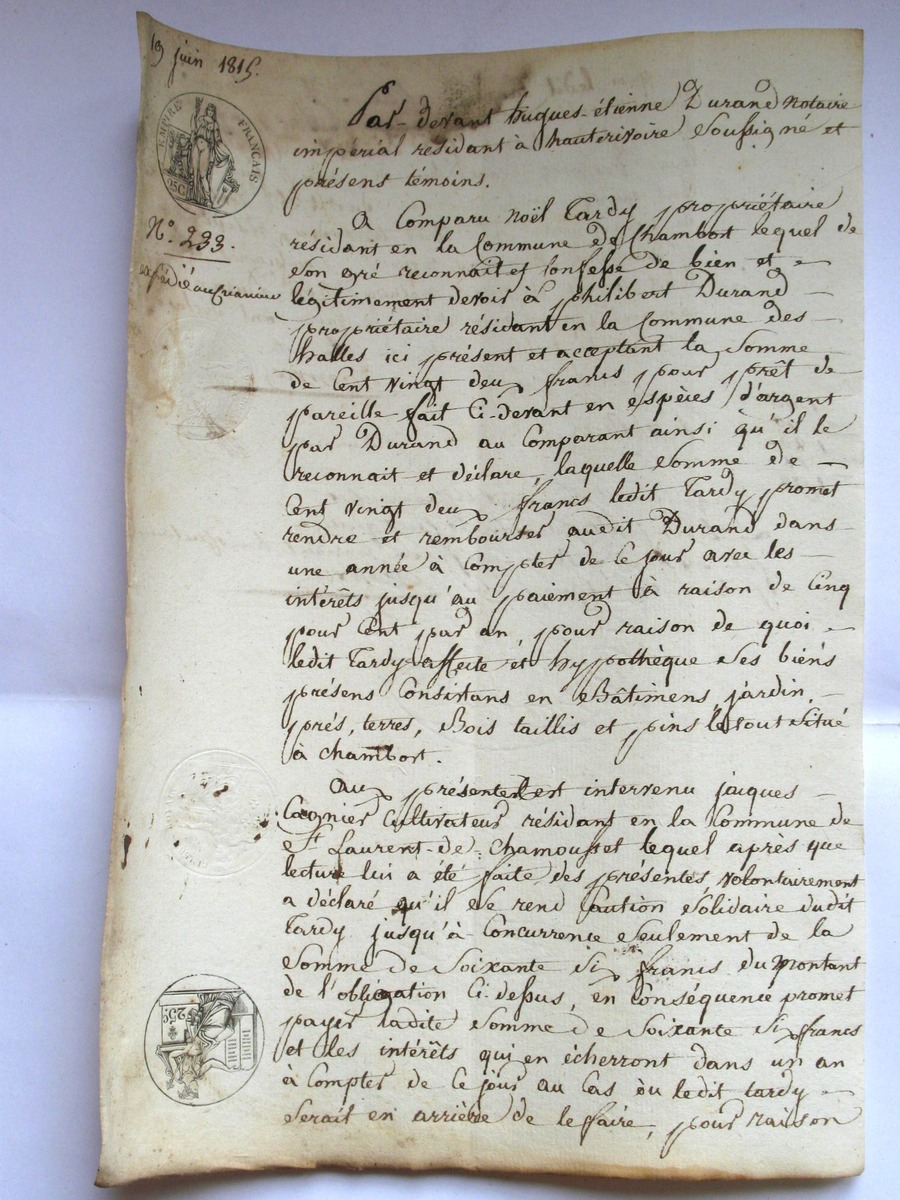 19 juin 1815.
EMPIRE FRANÇAIS
25C
N.° 233.
expédié au créancier
Par-devant hugues-étienne Durand notaire
impérial résidant à hauterivoire soussigné et
présens témoins.
A Comparu noël Tardy propriétaire
résidant en la Commune de Chambost lequel de
son gré reconnait et Confesse de bien et
légitimement devoir à philibert Durand
propriétaire résidant en la Commune des
halles ici présent et acceptant la somme
de Cent vingt deux francs pour prêt de
pareille fait Ci-devant en espèces d'argent
par Durand au Comparant ainsi qu'il le
reconnait et déclare, laquelle somme de
Cent vingt deux francs ledit Tardy promet
rendre et rembourser audit Durand dans
une année à Compter de Ce jour avec les
intérêts jusqu'au paiement à raison de Cinq
pour Cent par an, pour raison de quoi
ledit Tardy affecte et hypothèque ses biens
présens Consistans en Bâtimens, jardin,
prés, terres, Bois taillis et pins le tout situé
à Chambost.
Aux présentes est intervenu jacques
Cultivateur résidant en la Commune de
St Laurent-de-Chamousset lequel après que
lecture lui a été faite des présentes, volontairement
a déclaré qu'il se rend Caution solidaire dudit
Tardy jusqu'à Concurrence seulement de la
somme de soixante six francs du montant
de l'obligation Ci-dessus, en Conséquence promet
payer ladite somme de soixante six francs
et les intérêts qui en écherront dans un an
à Compter de Ce jour au Cas où ledit tardy
serait en arrière de le faire, pour raison
25c.